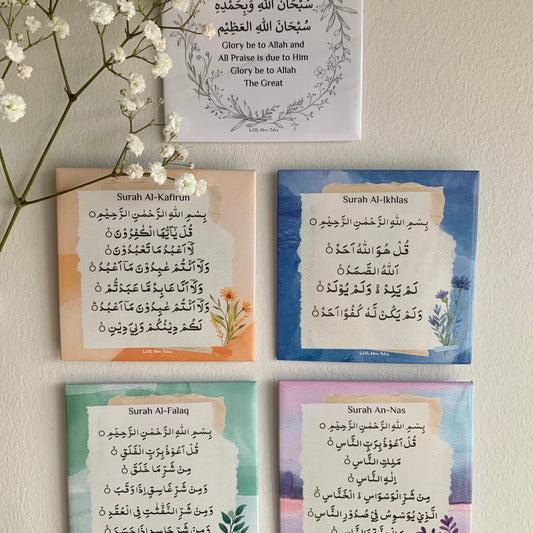 سُبْحَانَ اللهِ وَبِحَمْدِهِ
سُبْحَانَ اللهِ العَظِيْمِ
Glory be to Allah and
All Praise is due to Him
Glory be to Allah
The Great
Little Hiru Tales
Surah Al-Kafirun
بِسْمِ اللّٰهِ الرَّحْمٰنِ الرَّحِيْمِ ۝
قُلْ يٰٓاَيُّهَا الْكٰفِرُوْنَ ۝
لَآ اَعْبُدُ مَا تَعْبُدُوْنَ ۝
وَلَآ اَنْتُمْ عٰبِدُوْنَ مَآ اَعْبُدُ ۝
وَلَآ اَنَا عَابِدٌ مَّا عَبَدْتُّمْ ۝
وَلَآ اَنْتُمْ عٰبِدُوْنَ مَآ اَعْبُدُ ۝
لَكُمْ دِيْنُكُمْ وَلِيَ دِيْنِ ۝
Surah Al-Ikhlas
بِسْمِ اللّٰهِ الرَّحْمٰنِ الرَّحِيْمِ ۝
قُلْ هُوَ اللّٰهُ اَحَدٌ ۝
اَللّٰهُ الصَّمَدُ ۝
لَمْ يَلِدْ ۙ وَلَمْ يُوْلَدْ ۝
وَلَمْ يَكُنْ لَّهٗ كُفُوًا اَحَدٌ ۝
Surah Al-Falaq
بِسْمِ اللّٰهِ الرَّحْمٰنِ الرَّحِيْمِ ۝
قُلْ اَعُوْذُ بِرَبِّ الْفَلَقِ ۝
مِنْ شَرِّ مَا خَلَقَ ۝
وَمِنْ شَرِّ غَاسِقٍ اِذَا وَقَبَ ۝
وَمِنْ شَرِّ النَّفّٰثٰتِ فِي الْعُقَدِ ۝
وَمِنْ شَرِّ حَاسِدٍ اِذَا حَسَدَ ۝
Surah An-Nas
بِسْمِ اللّٰهِ الرَّحْمٰنِ الرَّحِيْمِ ۝
قُلْ اَعُوْذُ بِرَبِّ النَّاسِ ۝
مَلِكِ النَّاسِ ۝
اِلٰهِ النَّاسِ ۝
مِنْ شَرِّ الْوَسْوَاسِ ۙ الْخَنَّاسِ ۝
الَّذِيْ يُوَسْوِسُ فِيْ صُدُوْرِ النَّاسِ ۝